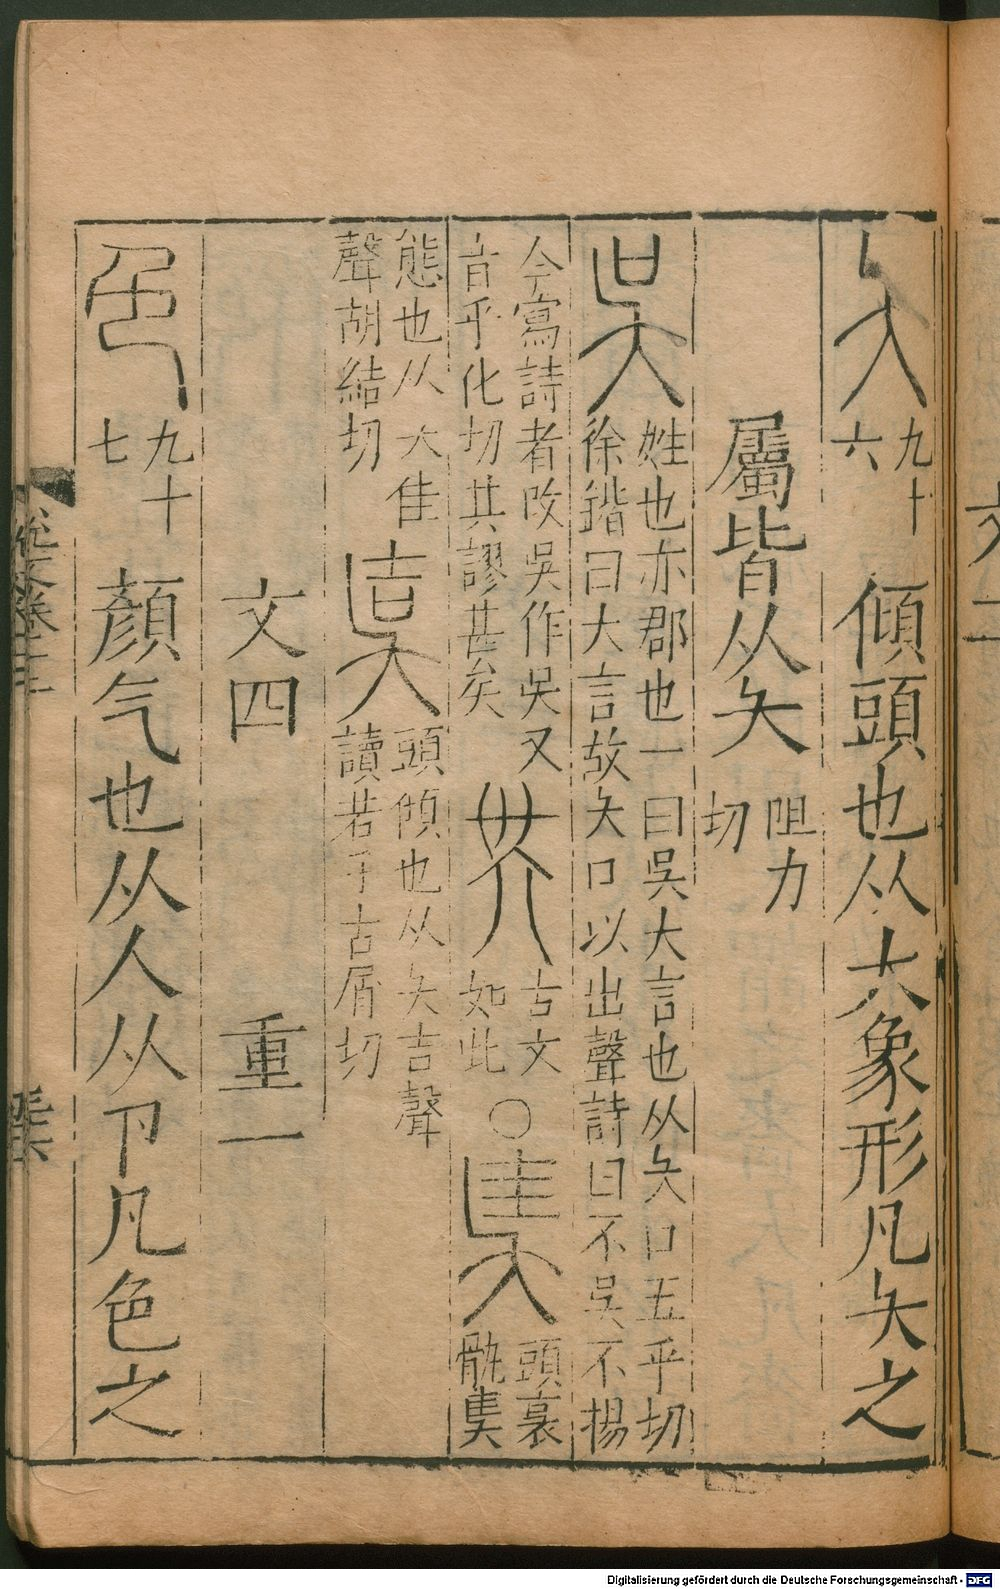 夨 九十六 傾頭也从大象形凡夨之
屬皆从夨 阻力切
吳 姓也亦郡也一曰吳大言也从夨口五乎切
徐鍇曰大言故夨口以出聲詩曰不吳不揚
今寫詩者改吳作吴又
音乎化切其謬甚矣 古文
如此 〇 頭衺
骫㚖
態也从大圭
聲胡結切 頭傾也从夨吉聲
讀若孑古屑切
文四 重一
色 九十七 顏气也从人从卪凡色之
Digitalisierung gefördert durch die Deutsche Forschungsgemeinschaft - DFG